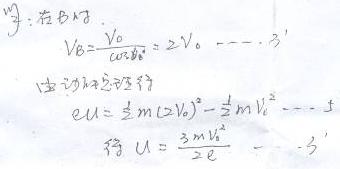 解:在B时
V_B = V_0 / cos60° = 2V_0 ---- 3'
由动能定理得
eU = ½m(2V_0)² - ½mV_0² ---
得 U = 3mV_0² / 2e --- 3'